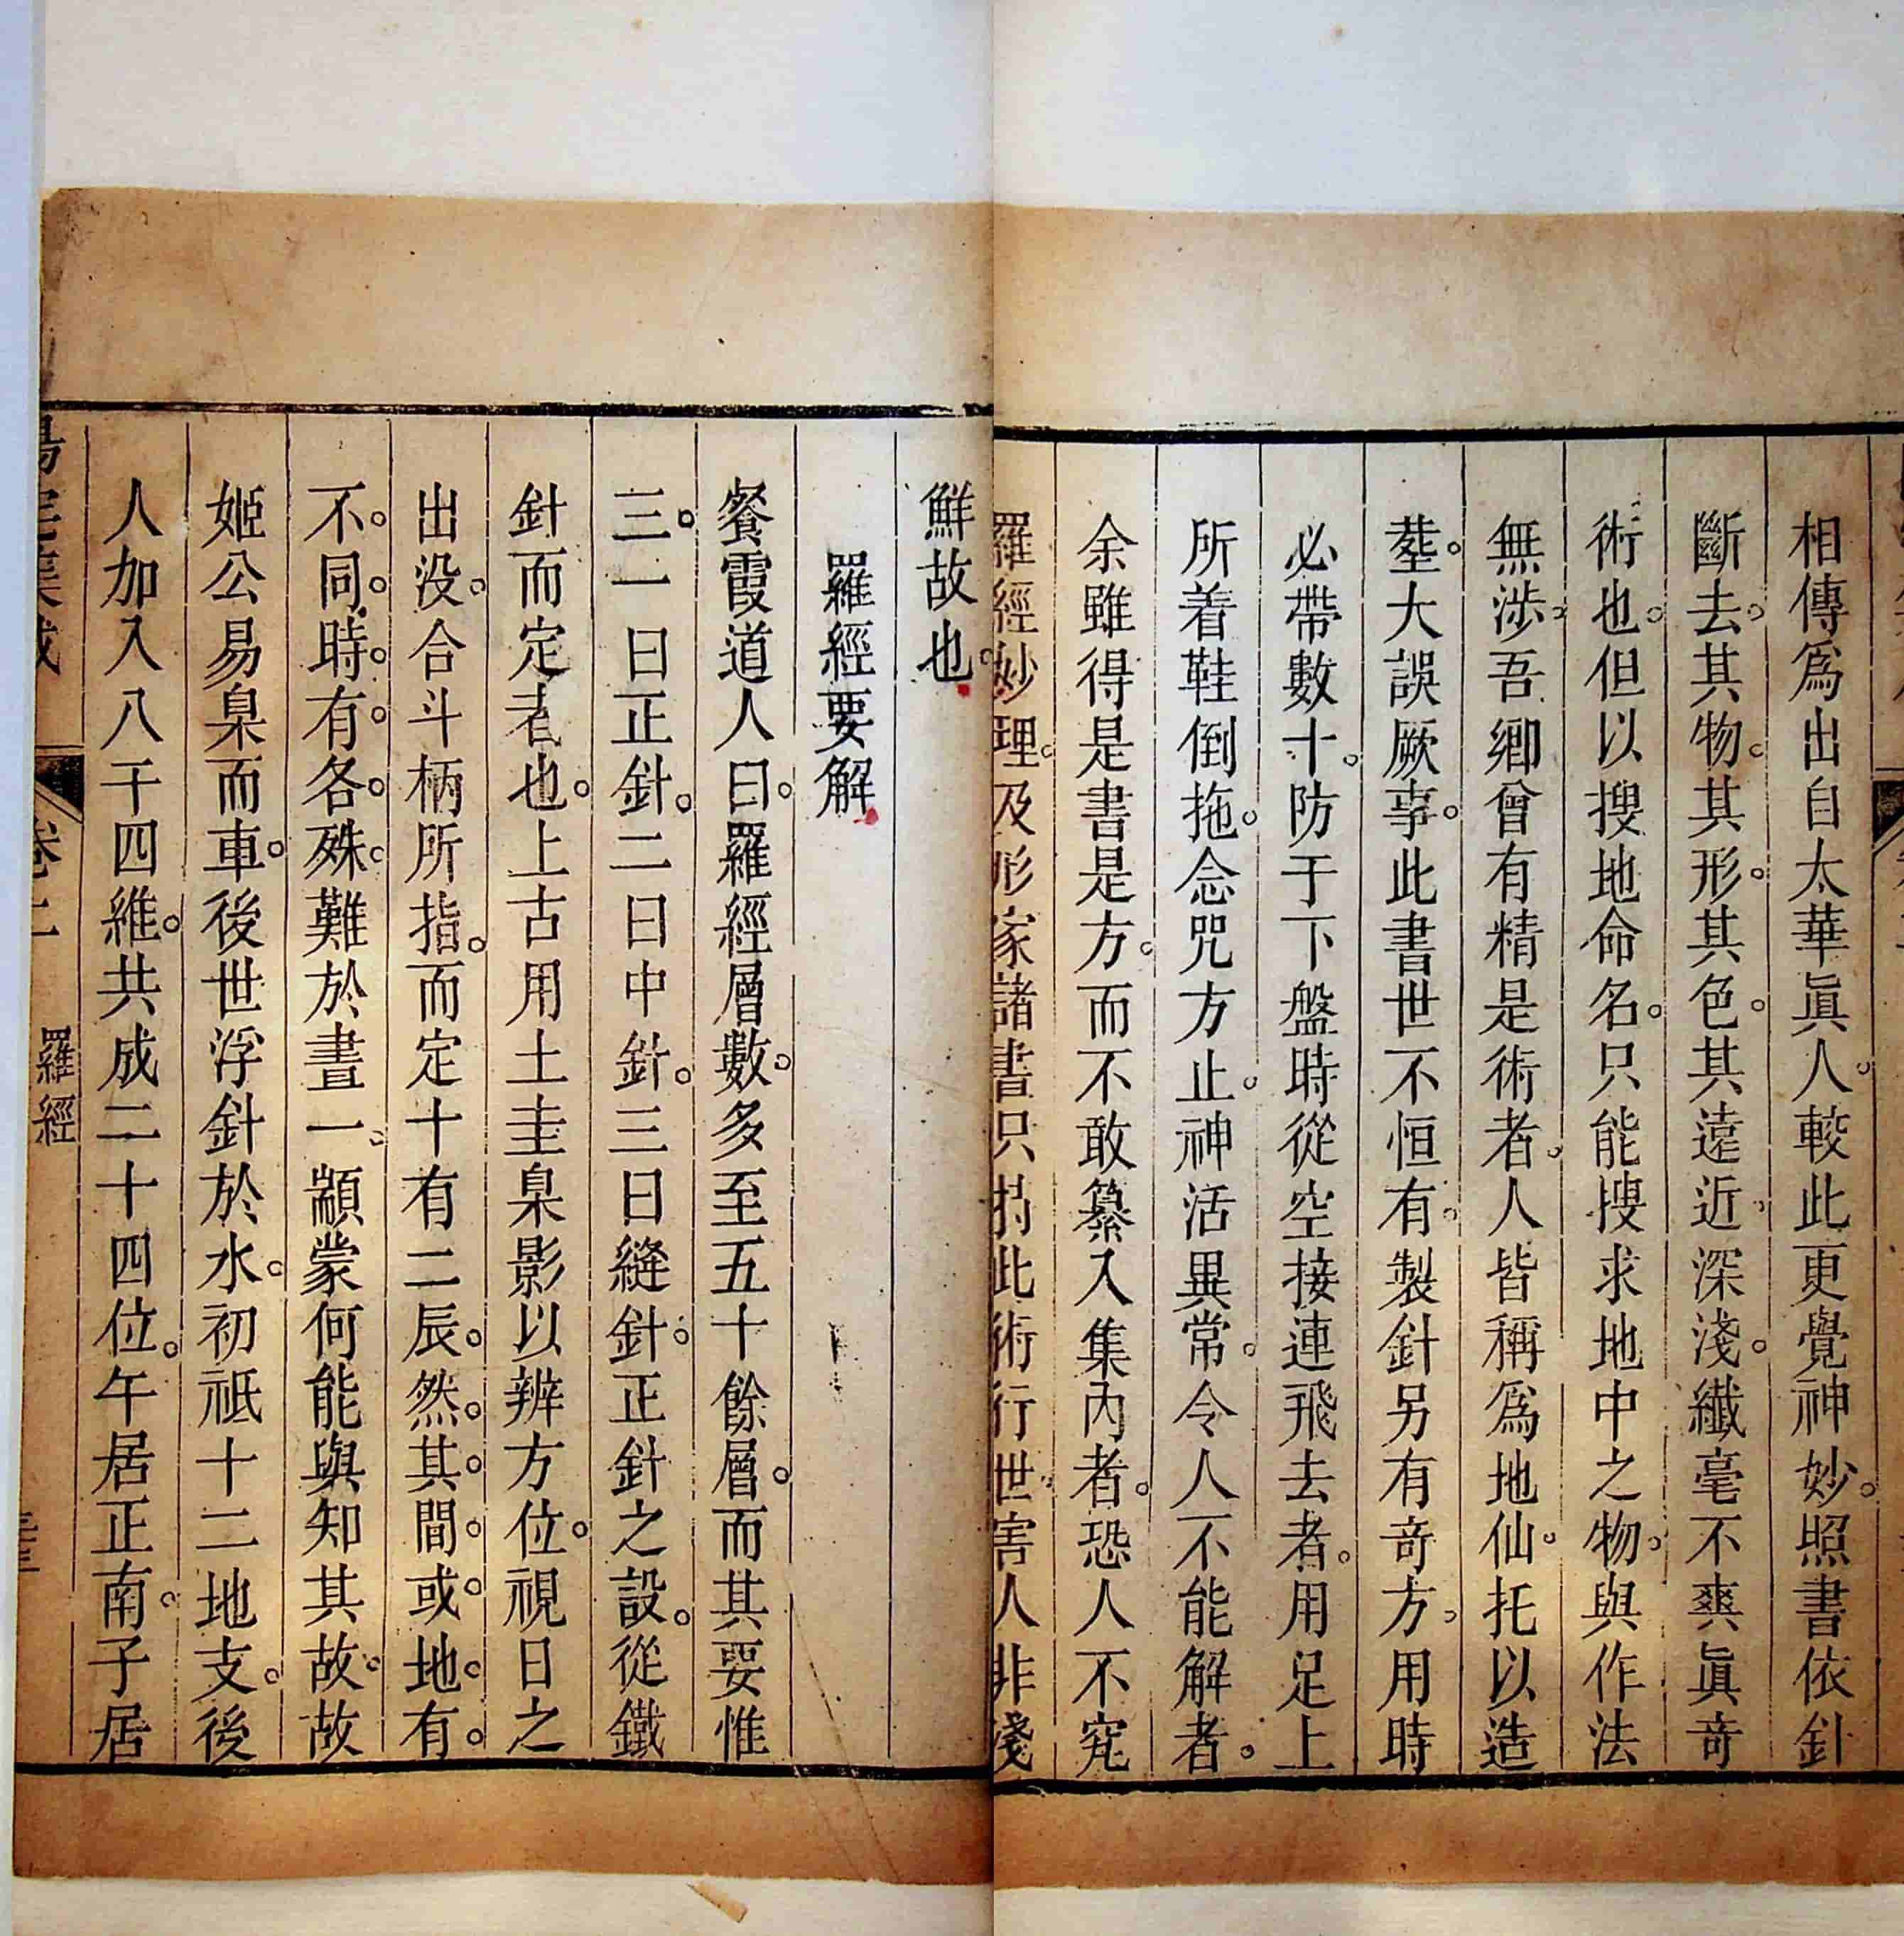 相傳爲出自太華眞人較此更覺神妙照書依針
斷去其物其形其色其遠近深淺纖毫不爽眞竒
術也但以搜地命名只能搜求地中之物與作法
無涉吾鄉曾有精是術者人皆稱爲地仙托以造
塟大誤厥事此書世不恒有製針另有竒方用時
必帶數十防于下盤時從空接連飛去者用足上
所着鞋倒拖念咒方止神活異常令人不能解者
余雖得是書是方而不敢纂入集內者恐人不究
羅經妙理及形家諸書只挒此術行世害人非淺
鮮故也
羅經要解
餐霞道人曰羅經層數多至五十餘層而其要惟
三一曰正針二曰中針三曰縫針正針之設從鐵
針而定者也上古用土圭臬影以辨方位視日之
出没合斗柄所指而定十有二辰然其間或地有
不同時有各殊難於畫一顓蒙何能與知其故故
姬公易臬而車後世浮針於水初祗十二地支後
人加入八干四維共成二十四位午居正南子居
陽宅集成
卷二
羅經